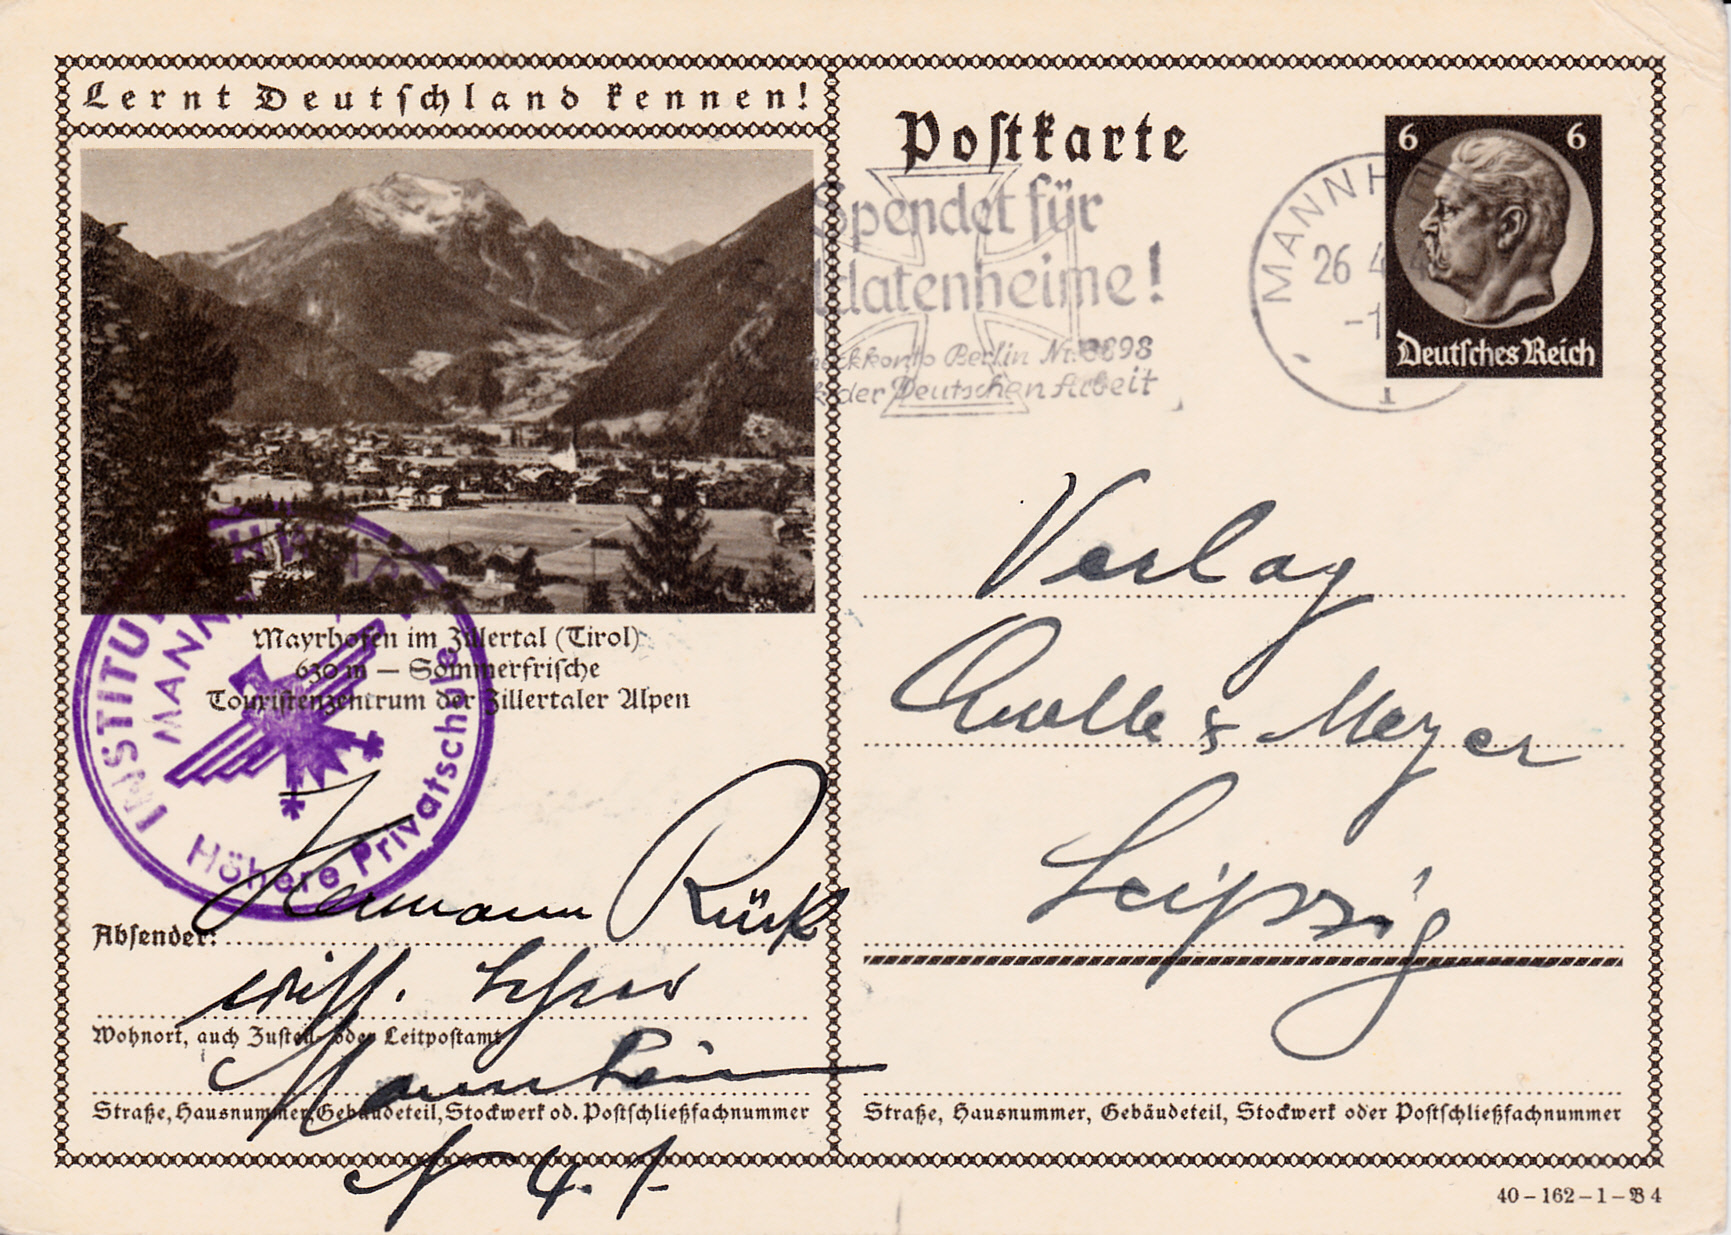 Lernt Deutschland kennen!
Mayrhofen im Zillertal (Tirol)
630 m — Sommerfrische
Touristenzentrum der Zillertaler Alpen
INSTITUT
MANNH
Höhere Privatschule
Absender: Hermann Rück
wiss. Lehrer
Wohnort, auch Zustell- oder Leitpostamt
Mannheim
Straße, Hausnummer, Gebäudeteil, Stockwerk od. Postschließfachnummer
N 4. 1.
Postkarte
Spendet für
ldatenheime!
eckkonto Berlin Nr. 8898
k der Deutschen Arbeit
MANNH
26 4
-1
6 6
Deutsches Reich
Verlag
Quelle & Meyer
Leipzig
Straße, Hausnummer, Gebäudeteil, Stockwerk oder Postschließfachnummer
40-162-1-B 4